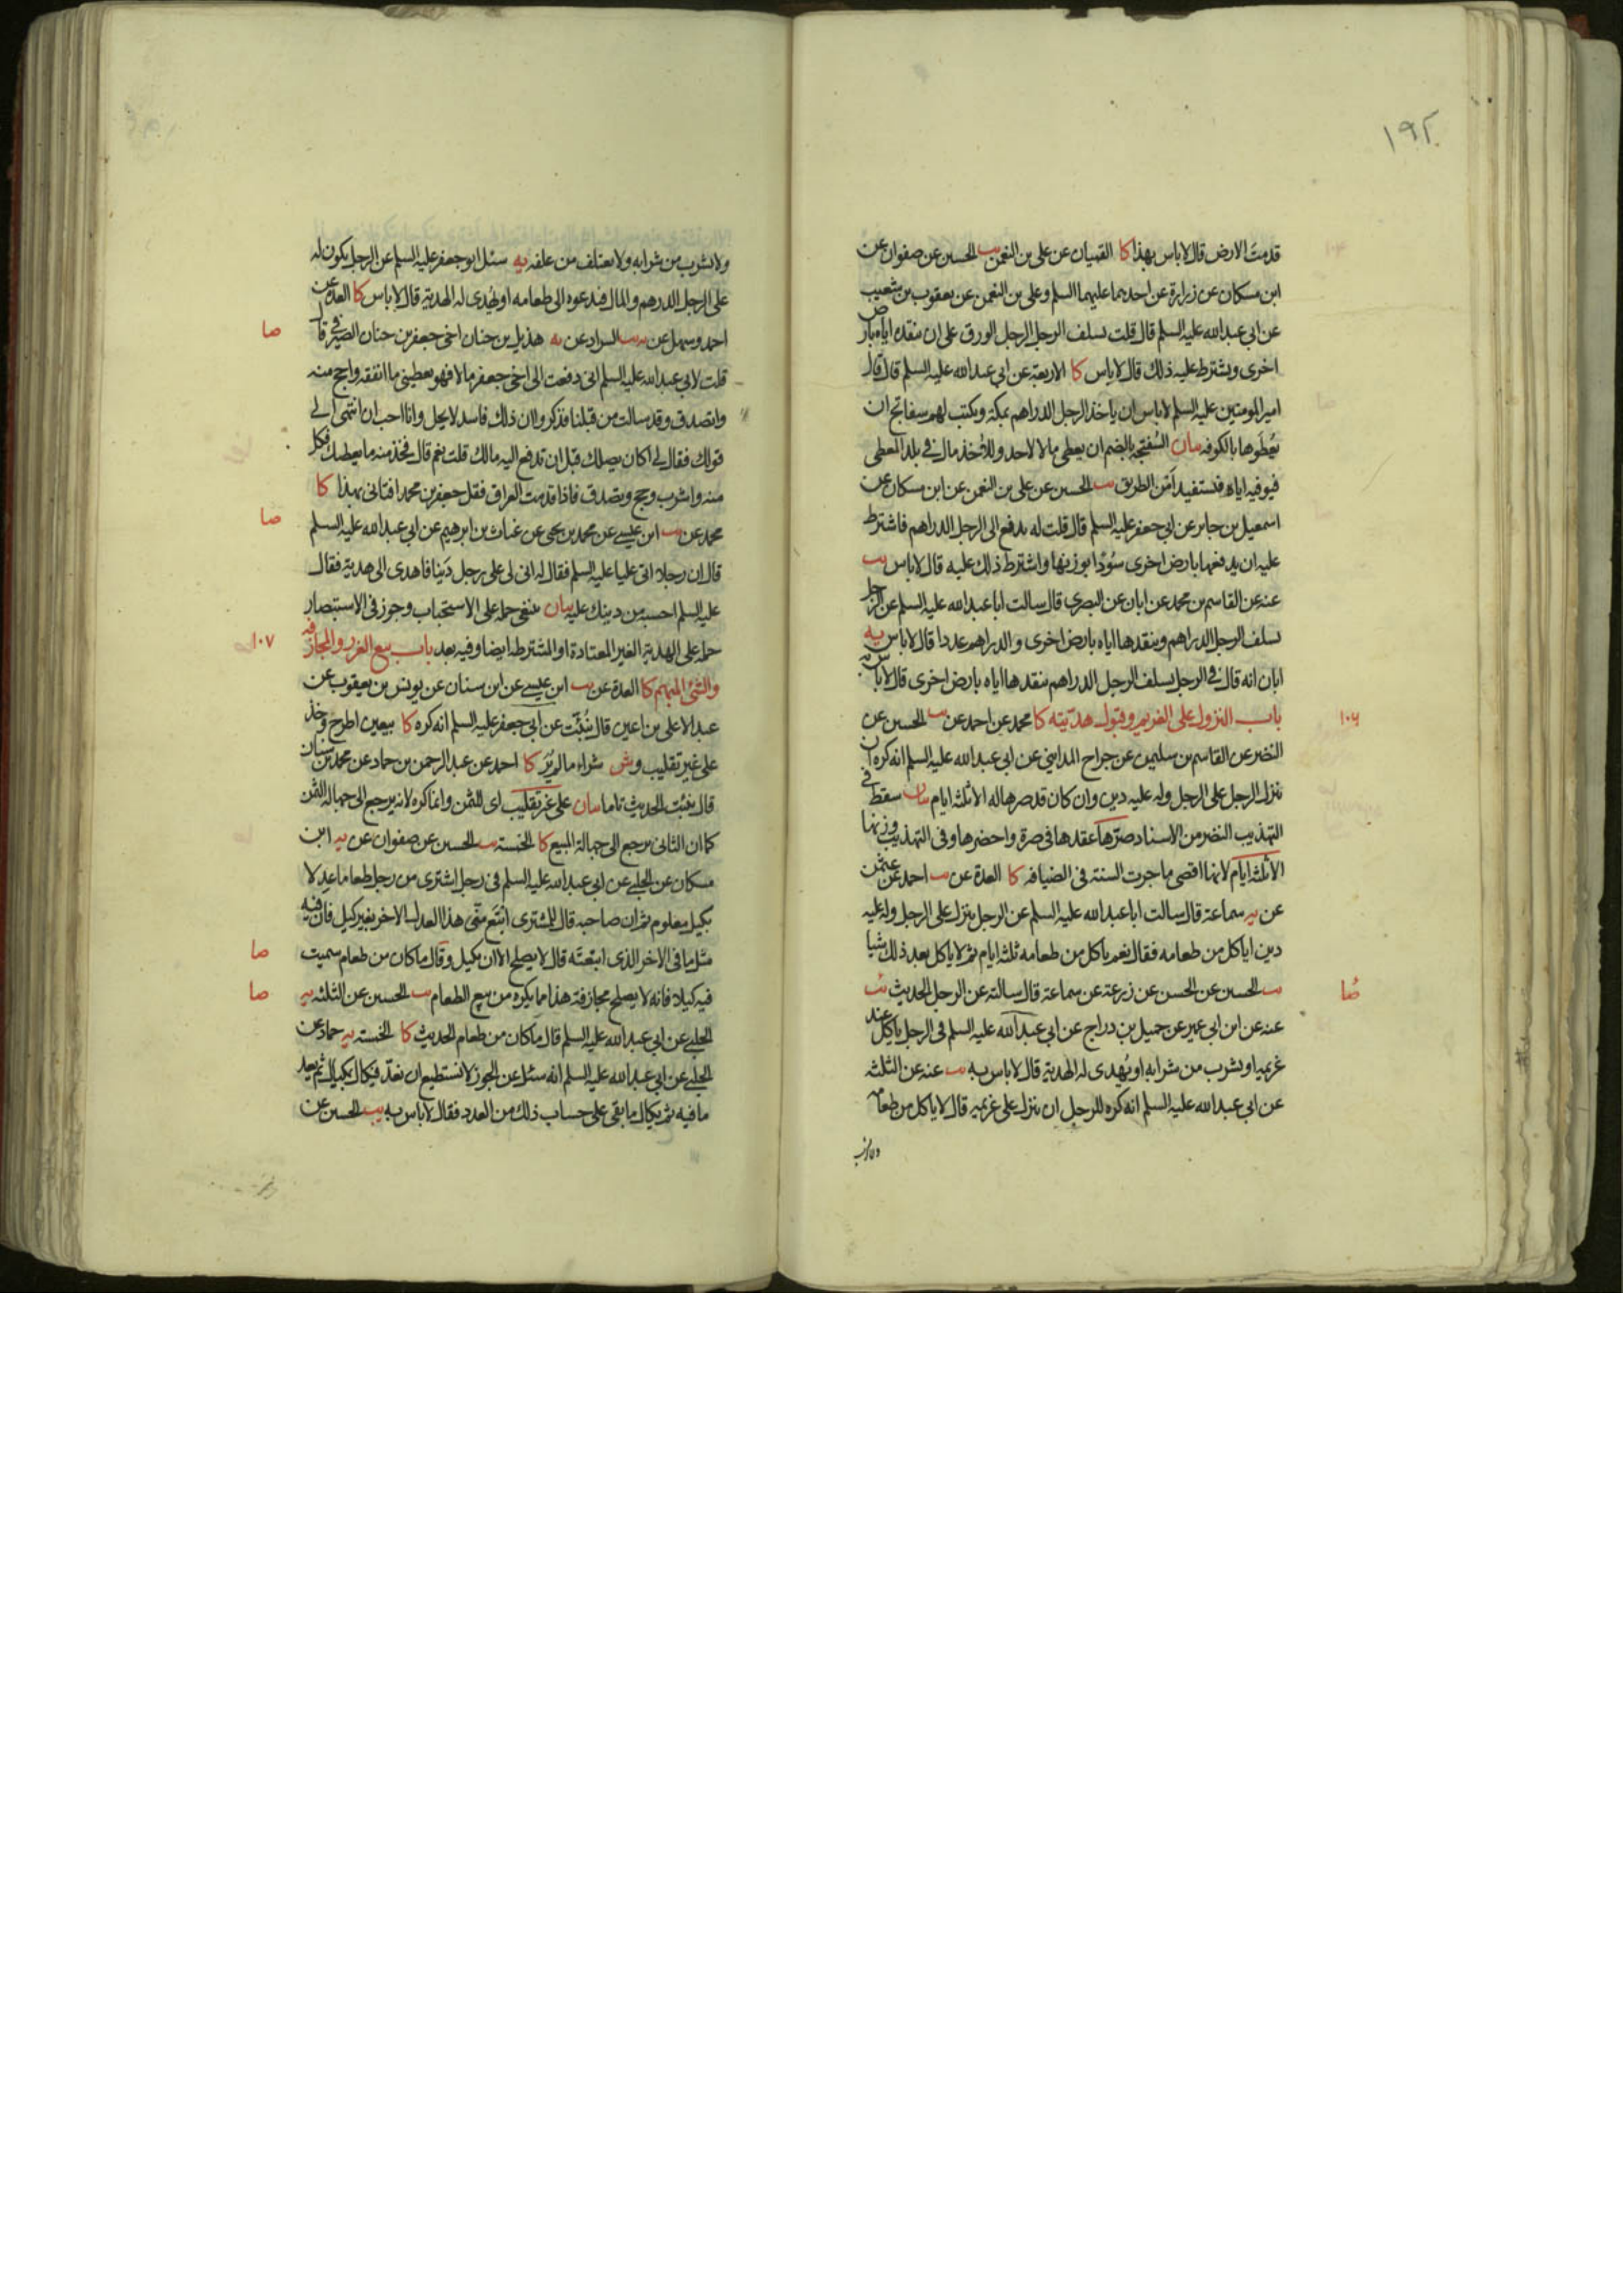 ١٩٢
قدمت الارض قال لا باس بهذا كا القميان عن علي بن النعمن يب الحسين عن صفوان عن
ابن مسكان عن زرارة عن احدهما عليهما السلم وعلي بن النعمن عن يعقوب بن شعيب
عن ابي عبد الله عليه السلم قال قلت يسلف الرجل الرجل الورق على ان ينقده اياه بارض
اخرى ويشترط عليه ذلك قال لا باس كا الاربعة عن ابي عبد الله عليه السلم قال قال
امير المومنين عليه السلم لا باس ان ياخذ الرجل الدراهم بمكة ويكتب لهم سفاتج ان
يعطوها بالكوفه بيان السفتجه بالضم ان يعطي مالا لاحد وللاخذ مال في بلد المعطي
فيوفيه اياه فيستفيد امن الطريق يب الحسين عن علي بن النعمن عن ابن مسكان عن
اسمعيل بن جابر عن ابي جعفر عليه السلم قال قلت له يدفع الى الرجل الدراهم فاشترط
عليه ان يدفعها بارض اخرى سودا بوزنها واشترط ذلك عليه قال لا باس يب
عنه عن القاسم بن محمد عن ابان عن البصري قال سالت ابا عبد الله عليه السلم عن الرجل
يسلف الرجل الدراهم وينقدها اياه بارض اخرى والدراهم عددا قال لا باس يه
ابان انه قال في الرجل يسلف الرجل الدراهم ينقدها اياه بارض اخرى قال لا باس به
باب النزول على الغريم وقبول هديته كا محمد عن احمد عن يب الحسين عن ١٠٦
النضر عن القاسم بن سليمن عن جراح المدايني عن ابي عبد الله عليه السلم انه كره ان
ينزل الرجل على الرجل وله عليه دين وان كان قد صرها له الا ثلثه ايام بيان سقط في
التهذيب النضر من الاسناد صرها عقدها في صرة واحضرها وفي التهذيب وزنها
الا ثلثه ايام لانها اقصى ما جرت السنة في الضيافه كا العدة عن يب احمد عن عثمن
عن يه سماعة قال سالت ابا عبد الله عليه السلم عن الرجل ينزل على الرجل وله عليه
دين اياكل من طعامه فقال نعم ياكل من طعامه ثلثه ايام ثم لا ياكل بعد ذلك شيا
يب الحسين عن الحسن عن زرعة عن سماعة قال سالته عن الرجل الحديث يب صا
عنه عن ابن ابي عمير عن جميل بن دراج عن ابي عبد الله عليه السلم في الرجل ياكل عند
غريمه او يشرب من شرابه او يهدى له الهدية قال لا باس به يب عنه عن الثلثه
عن ابي عبد الله عليه السلم انه كره للرجل ان ينزل على غريمه قال لا ياكل من طعامه
ولا يشرب
ولا يشرب من شرابه ولا يعتلف من علفه يه سئل ابو جعفر عليه السلم عن الرجل يكون له
على الرجل الدرهم والمال فيدعوه الى طعامه او يهدى له الهدية قال لا باس كا العدة عن
احمد وسهل عن يب السراد عن يه هذيل بن حنان اخي جعفر بن حنان الصيرفي قال صا
قلت لابي عبد الله عليه السلم اني دفعت الى اخي جعفر مالا فهو يعطيني ما انفقه واحج منه
واتصدق وقد سالت من قبلنا فذكروا ان ذلك فاسد لا يحل وانا احب ان انتهى الى
قولك فقال لي اكان يصلك قبل ان تدفع اليه مالك قلت نعم قال فخذ منه ما يعطيك فكل
منه واشرب وحج وتصدق فاذا قدمت العراق فقل جعفر بن محمد افتاني بهذا كا
محمد عن يب ابن عيسى عن محمد بن يحيى عن غياث بن ابرهيم عن ابي عبد الله عليه السلم صا
قال ان رجلا اتى عليا عليه السلم فقال له اني لى على رجل دينا فاهدى الى هدية فقال
عليه السلم احسبه من دينك عليه بيان ينبغي حمله على الاستحباب وجوز في الاستبصار
حمله على الهدية الغير المعتادة او المشترطه ايضا وفيه بعد باب بيع الغرر والمجازفه ١٠٧
والشئ المبهم كا العدة عن يب ابن عيسى عن ابن سنان عن يونس بن يعقوب عن
عبد الاعلى بن اعين قال نبئت عن ابي جعفر عليه السلم انه كره كا بيعين اطرح وخذ
على غير تقليب وش شراء ما لم تر كا احمد عن عبد الرحمن بن حماد عن محمد بن سنان
قال نبئت الحديث تاما بيان على غير تقليب اي للثمن وانما كره لانه يرجع الى جهالة الثمن
كما ان الثاني يرجع الى جهالة المبيع كا الخمسة يب الحسين عن صفوان عن يه ابن
مسكان عن الحلبي عن ابي عبد الله عليه السلم في رجل اشترى من رجل طعاما عدلا
بكيل معلوم ثم ان صاحبه قال للمشتري ابتع مني هذا العدل الاخر بغير كيل فان فيه
مثل ما في الاخر الذي ابتعته قال لا يصلح الا ان يكيل وقال ما كان من طعام سميت صا
فيه كيلا فانه لا يصلح مجازفة هذا مما يكره من بيع الطعام يب الحسين عن الثلثه يه صا
الحلبي عن ابي عبد الله عليه السلم قال ما كان من طعام الحديث كا الخمسة يه حماد عن
الحلبي عن ابي عبد الله عليه السلم انه سئل عن الجوز لا نستطيع ان نعد فيكال بمكيال ثم يعد
ما فيه ثم يكال ما بقى على حساب ذلك من العدد فقال لا باس به يب الحسين عن